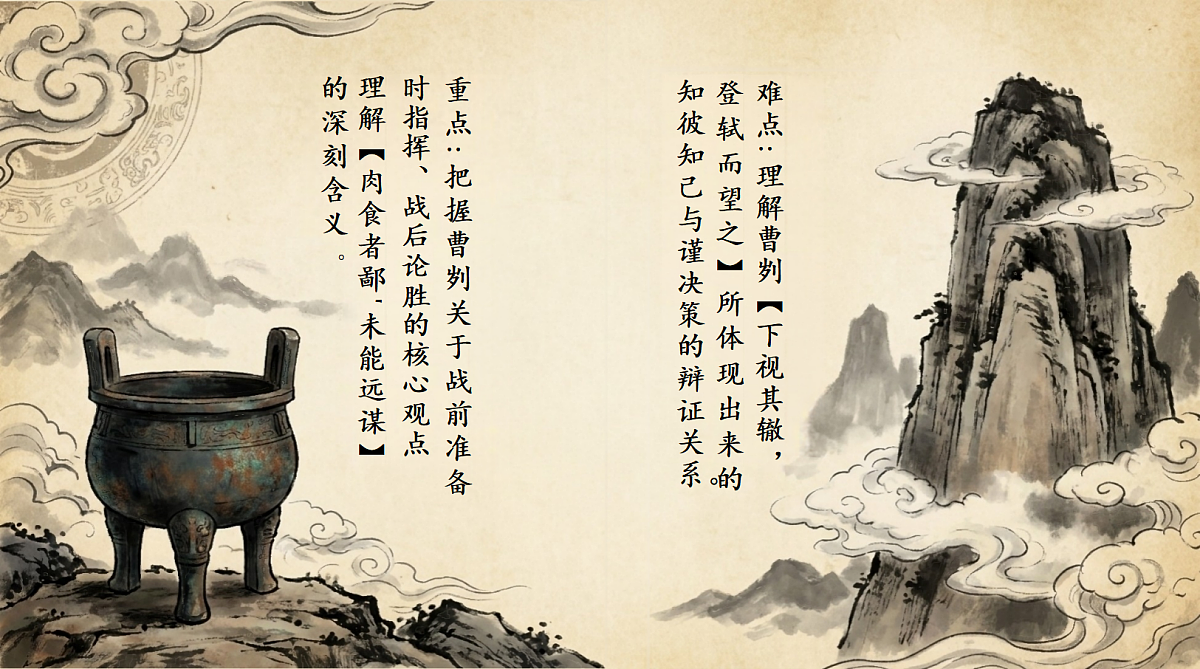 难点：理解曹刿【下视其辙，
登轼而望之】所体现出来的
知彼知己与谨决策的辩证关系。
重点：把握曹刿关于战前准备
时指挥、战后论胜的核心观点
理解【肉食者鄙，未能远谋】
的深刻含义。